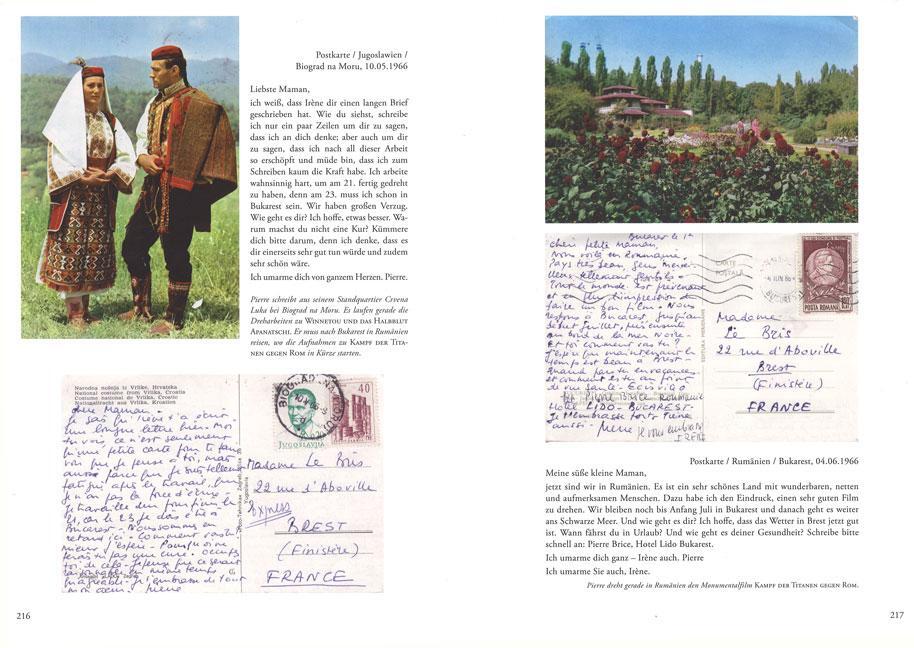 Postkarte / Jugoslawien /
Biograd na Moru, 10.05.1966
Liebste Maman,
ich weiß, dass Irène dir einen langen Brief
geschrieben hat. Wie du siehst, schreibe
ich nur ein paar Zeilen um dir zu sagen,
dass ich an dich denke; aber auch um dir
zu sagen, dass ich nach all dieser Arbeit
so erschöpft und müde bin, dass ich zum
Schreiben kaum die Kraft habe. Ich arbeite
wahnsinnig hart, um am 21. fertig gedreht
zu haben, denn am 23. muss ich schon in
Bukarest sein. Wir haben großen Verzug.
Wie geht es dir? Ich hoffe, etwas besser. Wa-
rum machst du nicht eine Kur? Kümmere
dich bitte darum, denn ich denke, dass es
dir einerseits sehr gut tun würde und zudem
sehr schön wäre.
Ich umarme dich von ganzem Herzen. Pierre.
Pierre schreibt aus seinem Standquartier Crvena
Luka bei Biograd na Moru. Es laufen gerade die
Dreharbeiten zu WINNETOU UND DAS HALBBLUT
APANATSCHI. Er muss nach Bukarest in Rumänien
reisen, wo die Aufnahmen zu KAMPF DER TITA-
NEN GEGEN ROM in Kürze starten.
Narodna nošnja iz Vrlike, Hrvatska
National costume from Vrlika, Croatia
Costume national de Vrlika, Croatie
Nationaltracht aus Vrlika, Kroatien
chère Maman.
je sais qu'Irène t'a écrit
une longue lettre
tu vois ce n'est seulement
qu'une petite carte pour te faire
voir que je pense à toi, mais
aussi parce que je suis tellement
fatigué après le travail, que
je n'ai pas la force d'écrire.
Je travaille
21, car le 23 je dois être à
Bucarest. Nous sommes en
retard ici. Comment vas tu?
mieux j'espère. Pourquoi ne
ferais tu pas une cure. occupe
toi de cela. Je pense que ce serait
agréable. je t'embrasse de tout
mon cœur. Pierre
40
JUGOSLAVIJA
Madame Le Bris
22 rue d'Aboville
Express
BREST
(Finistère)
FRANCE
216
Bucarest le
chère petite Maman,
Nous voilà en Roumanie,
Pays très beau, gens merveil-
leux tellement gentils
tout le monde est prévenant
et en plus l'impression de
faire un bon film. Nous
restons à Bucarest jusqu'au
début Juillet, puis ensuite
au bord de la mer Noire.
Et toi comment vas tu?
J'espère que maintenant le
temps est beau à Brest.
Quand pars tu en vacances
et comment es tu au point
de vue santé. Ecris vite
Pierre Brice Roumanie
Hotel LIDO - BUCAREST.
Je t'embrasse fort Irène
aussi. Pierre je vous embrasse
IRENE
CARTE
POSTALA
EDITURA MERIDIANE
POSTA ROMANA
Madame
Le Bris
22 rue d'Aboville
Brest
(Finistère)
FRANCE
Postkarte / Rumänien / Bukarest, 04.06.1966
Meine süße kleine Maman,
jetzt sind wir in Rumänien. Es ist ein sehr schönes Land mit wunderbaren, netten
und aufmerksamen Menschen. Dazu habe ich den Eindruck, einen sehr guten Film
zu drehen. Wir bleiben noch bis Anfang Juli in Bukarest und danach geht es weiter
ans Schwarze Meer. Und wie geht es dir? Ich hoffe, dass das Wetter in Brest jetzt gut
ist. Wann fährst du in Urlaub? Und wie geht es deiner Gesundheit? Schreibe bitte
schnell an: Pierre Brice, Hotel Lido Bukarest.
Ich umarme dich ganz – Irène auch. Pierre
Ich umarme Sie auch, Irène.
Pierre dreht gerade in Rumänien den Monumentalfilm KAMPF DER TITANEN GEGEN ROM.
217